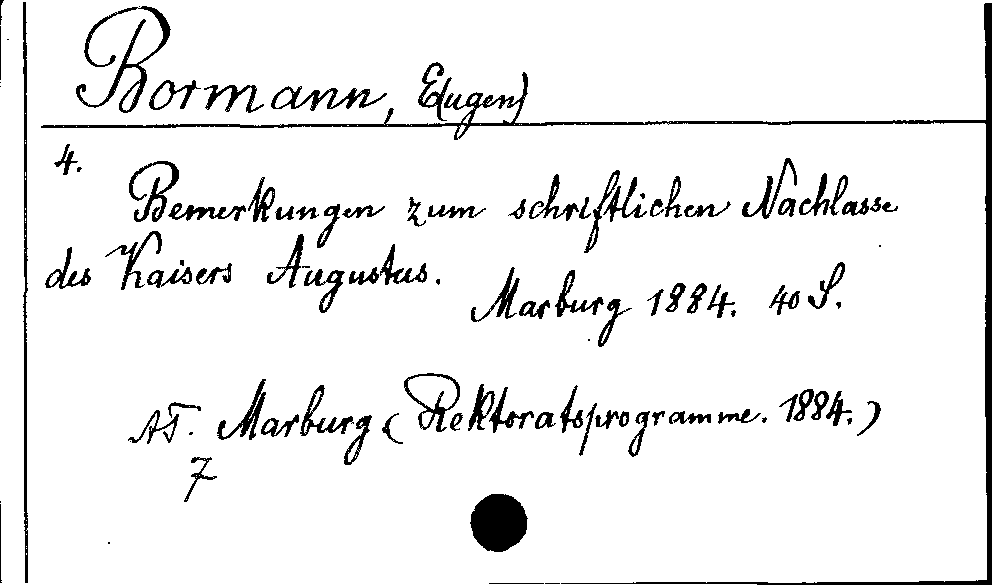 Bormann, E(ugen)
4.
Bemerkungen zum schriftlichen Nachlasse
des Kaisers Augustus.
Marburg 1884. 40 S.
AT. Marburg (Rektoratsprogramme. 1884.)
7